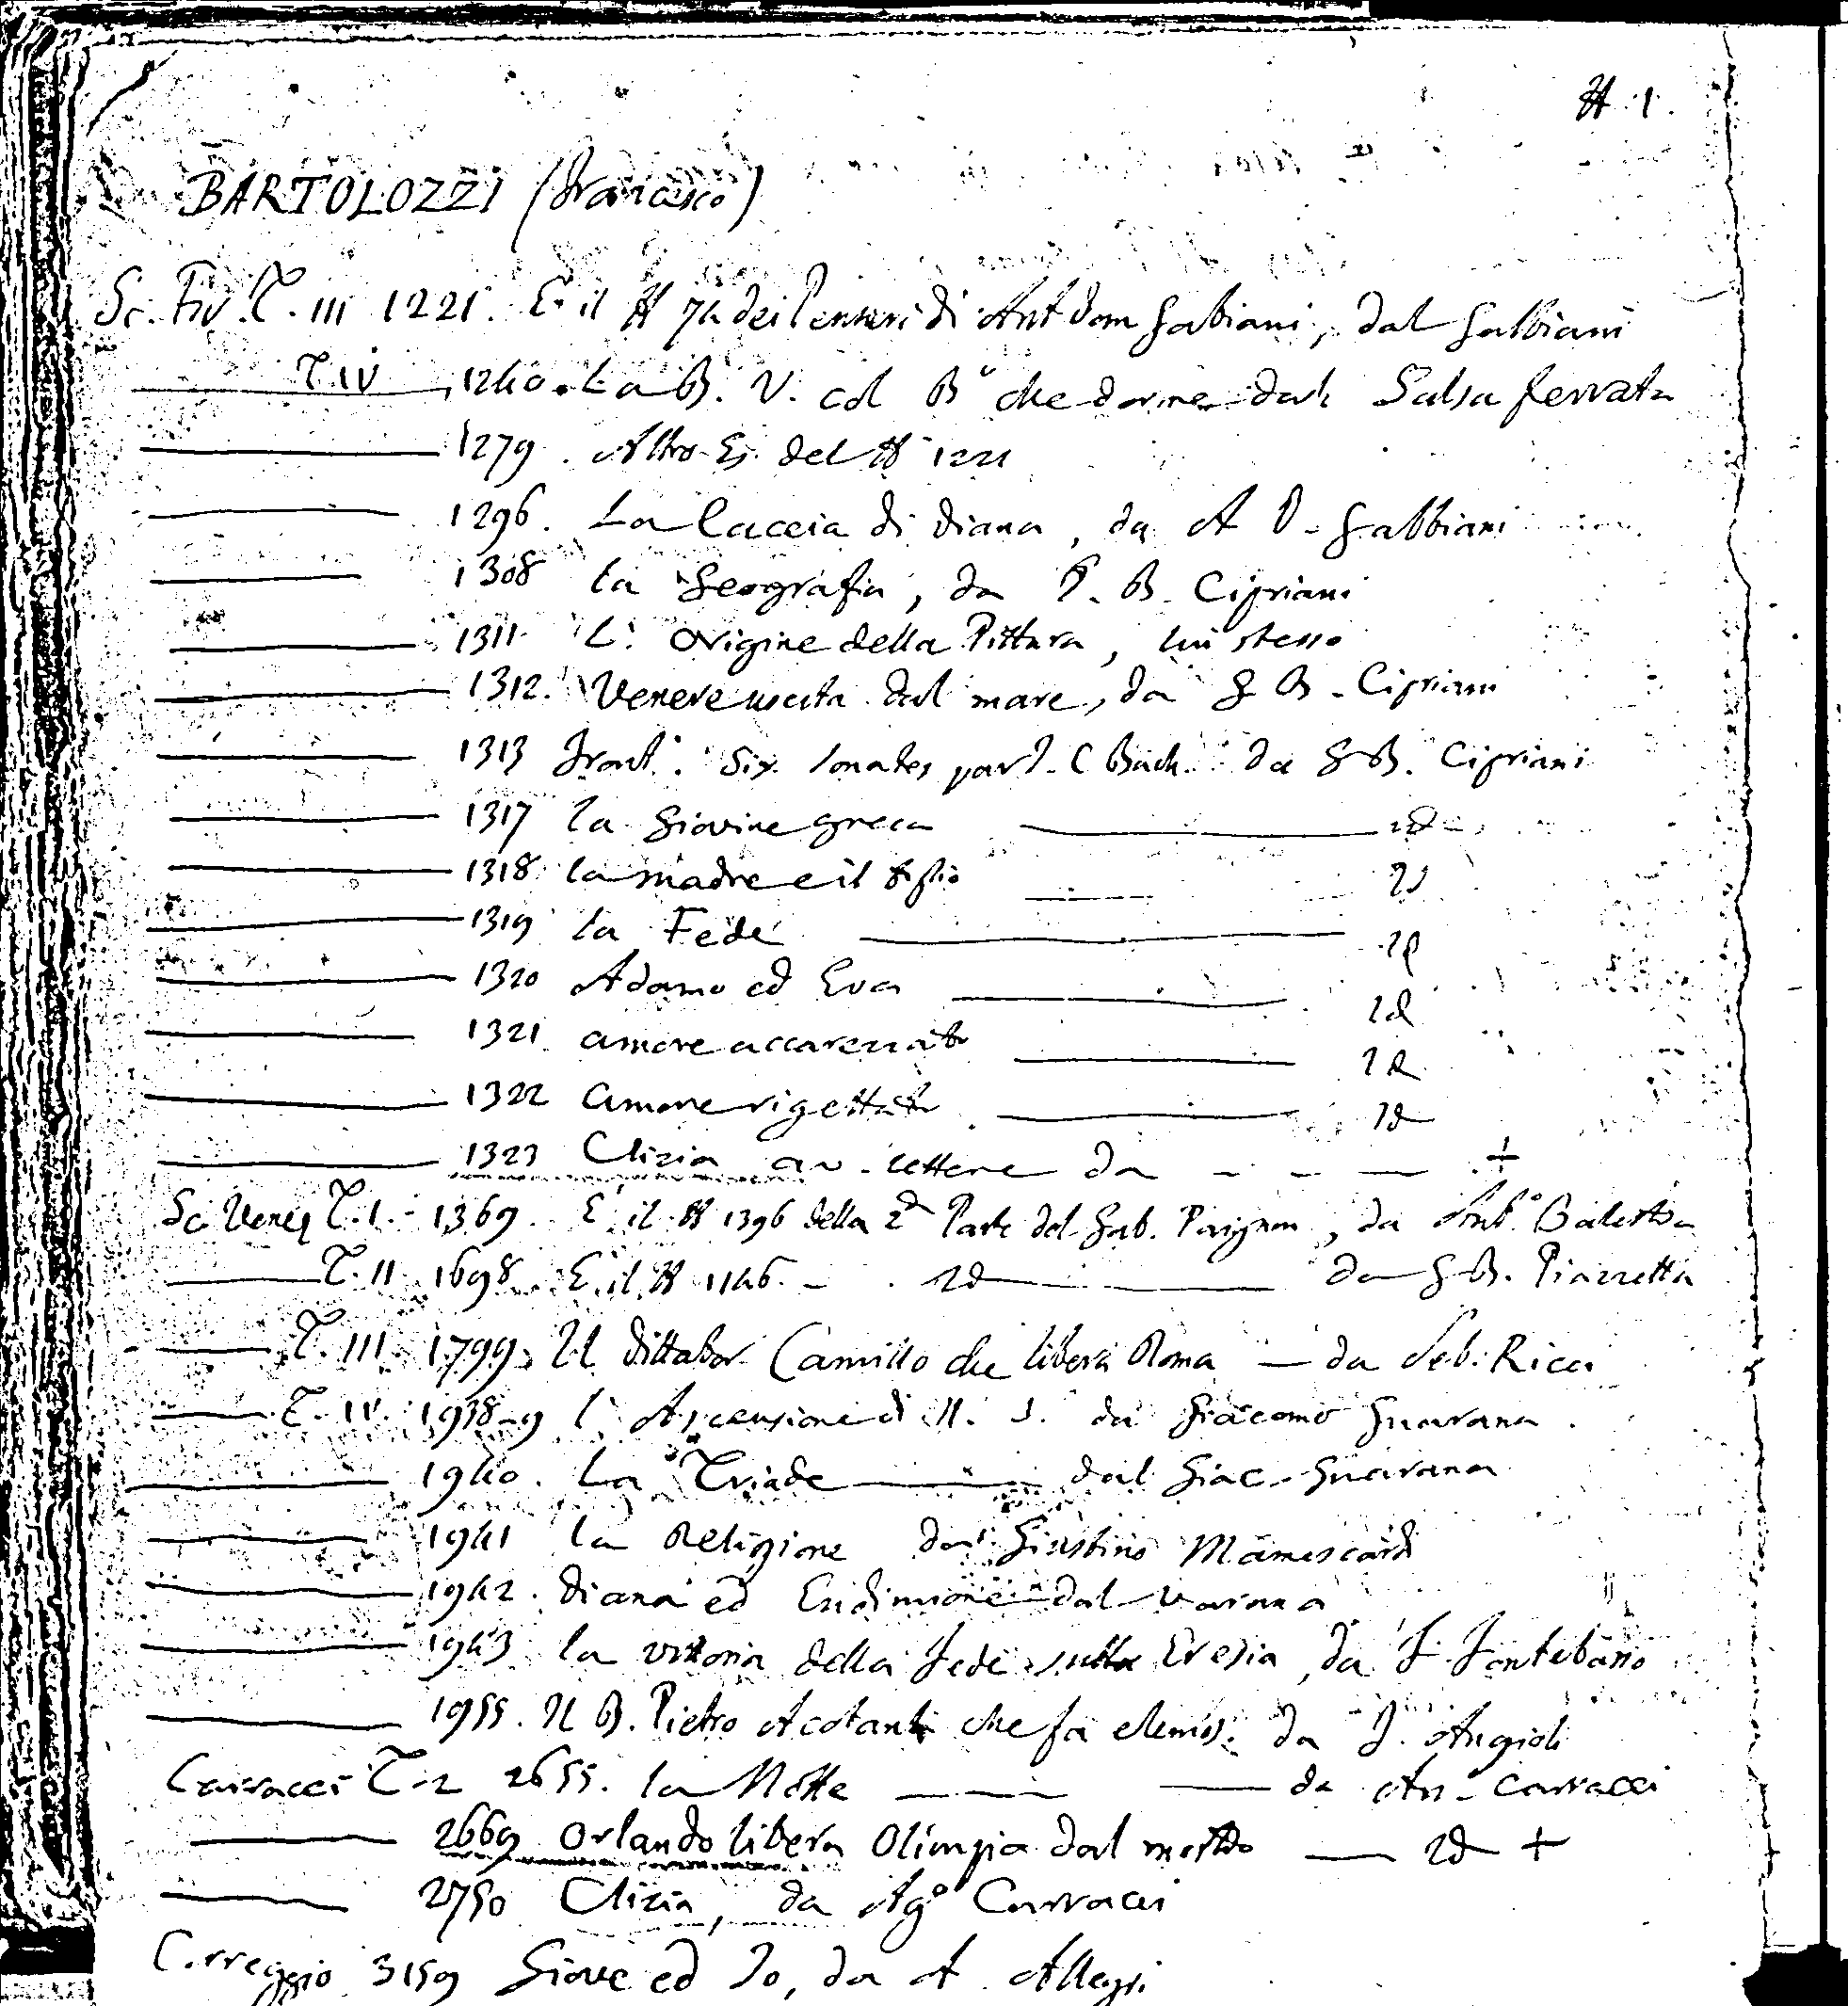 N. 1.
BARTOLOZZI (Francesco)
Sc. Fio. T. III 1221. E il N 74 dei Pensieri di Ant Dom Gabiani, dal Gabbiani
T. IV 1240. La B. V. col Bo che dorme dal Salsaferrata
1279. Altro Es. del N 1221
1296. La Caccia di Diana, da A D. Gabbiani
1308 la Geografia, da G. B. Cipriani
1311 L'Origine della Pittura, lui stesso
1312. Venere uscita dal mare, da G B. Cipriani
1313 Front. Six Sonates par J. C Bach. da G B. Cipriani
1317 la Giovine greca id
1318 la madre e il figlio id
1319 la Fede id
1320 Adamo ed Eva id
1321 amore accarezzato id
1322 amore rigettato id
1323 Clizia av. lettere da +
Sc Venez T. I. 1369. E il N 1396 della 2a Parte del Gab. Paignon, da Anto. Balestra
T. II 1698. E il N 1146. id da G B. Piazzetta
T. III 1799. Il Dittator Camillo che libera Roma da Seb. Ricci
T. IV. 1938-9 l'Ascensione di N. S. da Giacomo Guarana.
1940. La Triade dal Giac. Guarana
1941 la Religione da Giustino
1942. Diana ed Endimione dal varana
1943 la vittoria della Fede sulla Eresia, da F. Fontebasso
1955. Il B. Pietro Acotanto che fa elemos. da J. Angioli
Carracci T. 2 2655. la Notte da An. Carracci
2669 Orlando libera Olimpia dal mostro id +
2750 Clizia, da Ago Carracci
Correggio 3159 Giove ed Io, da A. Allegri